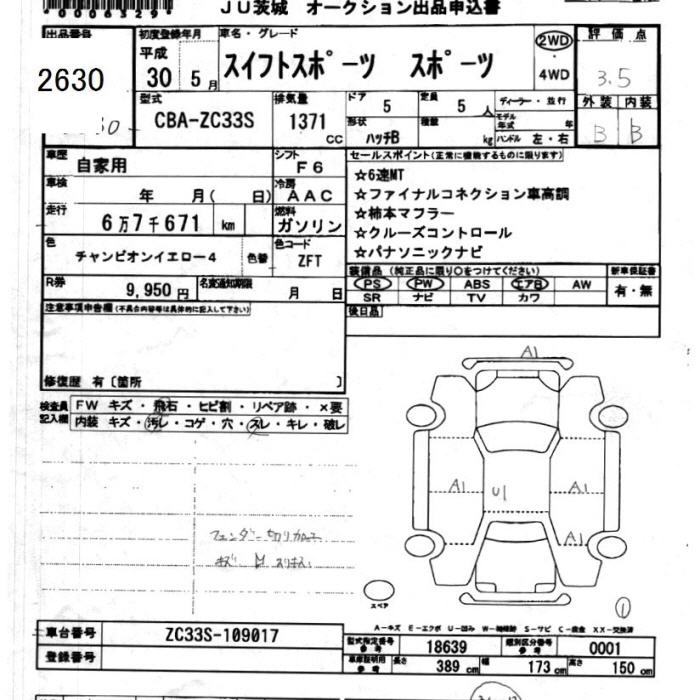 00006329
JU茨城 オークション出品申込書
出品番号
2630
初度登録年月
平成
30 5月
車名・グレード
スイフトスポーツ スポーツ
2WD
・
4WD
評価点
3.5
外装 内装
B B
型式
CBA-ZC33S
排気量
1371 cc
ドア
5
定員
5 人
形状
ハッチB
積載
kg
ディーラー・並行
モデル年式 年
ハンドル 左・右
車歴
自家用
シフト
F6
車検
年 月( 日)
冷房
AAC
走行
6万7千671 km
燃料
ガソリン
色
チャンピオンイエロー4
色替
色コード
ZFT
R券
9,950円
名変通知期限
月 日
セールスポイント(正常に機能するものに限ります)
☆6速MT
☆ファイナルコネクション車高調
☆柿本マフラー
☆クルーズコントロール
☆パナソニックナビ
装備品 (純正品に限り○をつけてください)
新車保証書
PS PW ABS エアB AW
SR ナビ TV カワ
有・無
後日品
注意事項申告欄(不具合内容等は具体的に記入して下さい)
修復歴 有〔箇所 〕
検査員記入欄
FW キズ・飛石・ヒビ割・リペア跡・×要
内装 キズ・汚レ・コゲ・穴・スレ・キレ・破レ
A1
A1
U1
A1
A1
フェンダー切り
キズ
スペア
①
A-キズ E-エクボ U-凹み W-補修跡 S-サビ C-腐食 XX-交換済
車台番号
ZC33S-109017
登録番号
型式指定番号 参考
18639
類別区分番号 参考
0001
車庫証明用 参考
長さ 389 cm 幅 173 cm 高さ 150 cm